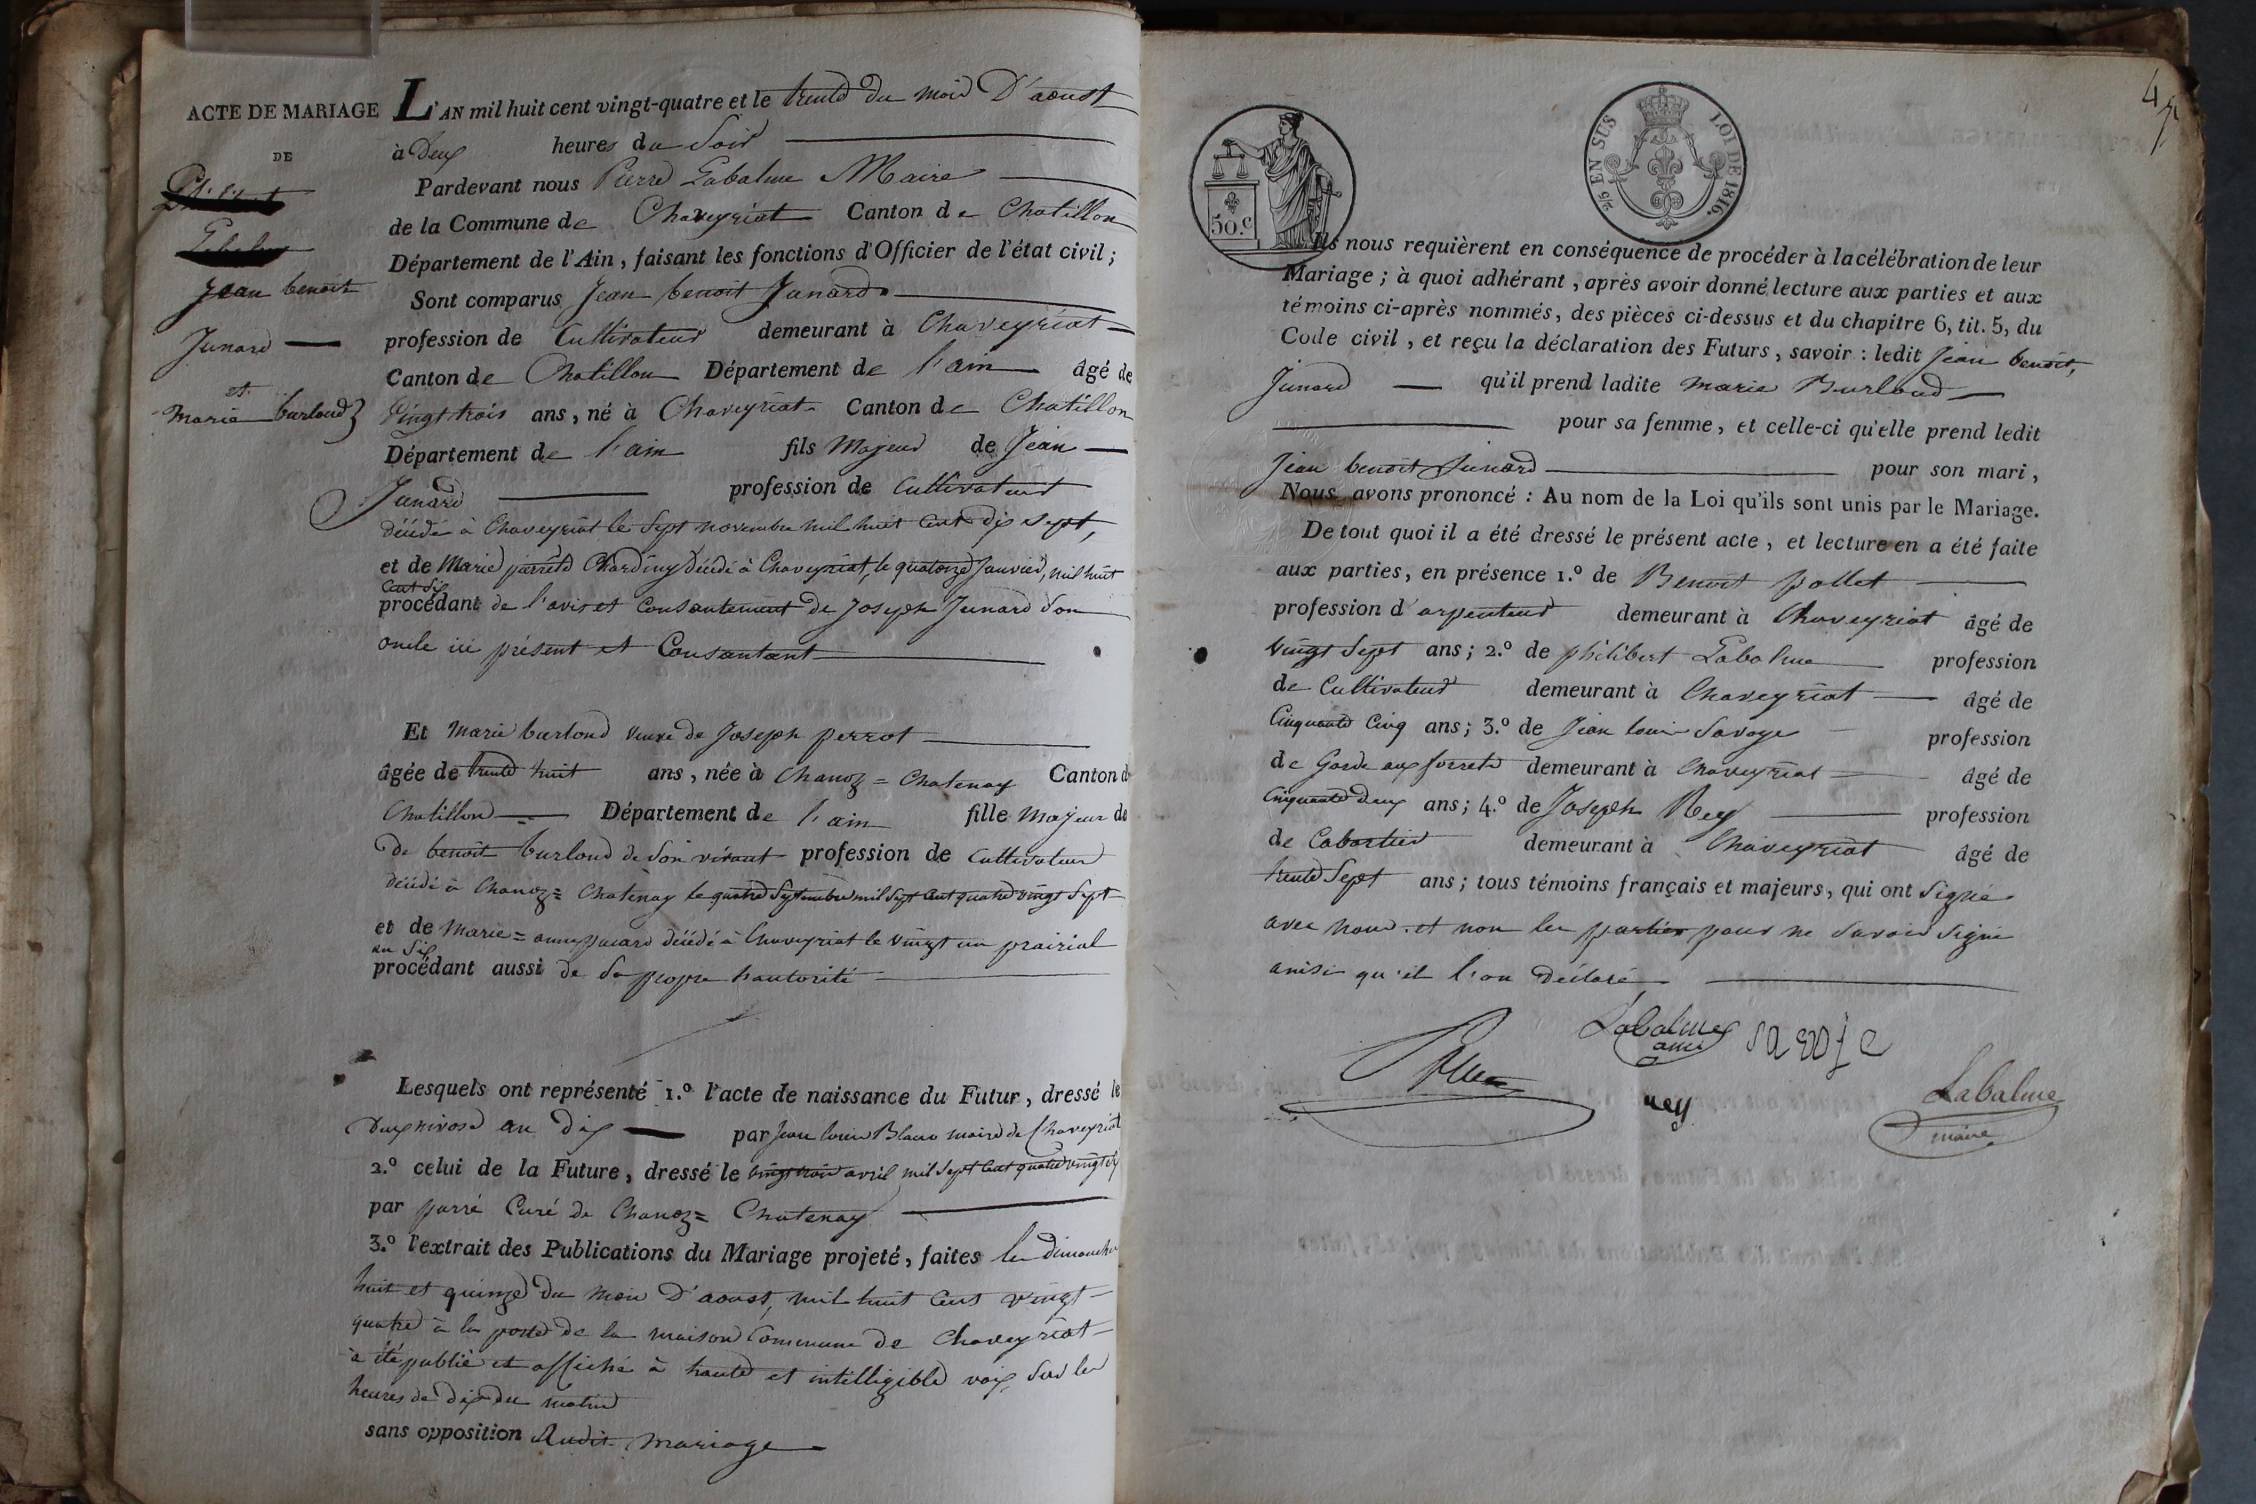 ACTE DE MARIAGE
DE
Jean benoit
Junard
et
Marie burloud
L'AN mil huit cent vingt-quatre et le trente du mois D'aoust
à Deux heures du Soir
Pardevant nous Pierre Labalme Maire
de la Commune de Chaveyriat Canton de Chatillon
Département de l'Ain, faisant les fonctions d'Officier de l'état civil;
Sont comparus Jean benoit Junard
profession de Cultivateur demeurant à Chaveyriat
Canton de Chatillon Département de l'ain âgé de
Vingt trois ans, né à Chaveyriat Canton de Chatillon
Département de l'ain fils Majeur de Jean
Junard profession de Cultivateur
décédé à Chaveyriat le Sept novembre mil huit Cent dix sept,
et de Marie Chardiny décédé à Chaveyriat, le quatorze Janvier, mil huit
Cent Six
procédant de l'avis et Consantement de Joseph Junard Son
oncle ici présent et Consantant
Et Marie burloud veuve de Joseph perrot
âgée de trente huit ans, née à Chanoz = Chatenay Canton de
Chatillon Département de l'ain fille Majeur de
De benoit burloud de Son vivant profession de Cultivateur
décédé à Chanoz = Chatenay le quatre Septembre mil Sept Cent quatre vingt Sept
et de Marie = anne décédé à Chaveyriat le vingt un prairial
an Six
procédant aussi de Sa propre hautorité
Lesquels ont représenté 1.º l'acte de naissance du Futur, dressé le
Deux nivose an dix par Jean louis Blanc maire de Chaveyriat
2.º celui de la Future, dressé le vingt trois avril mil Sept Cent quatre vingt six
par parré Curé de Chanoz = Chatenay
3.º l'extrait des Publications du Mariage projeté, faites les dimanches
huit et quinze du mois D'aoust, mil huit Cent vingt
quatre à la porte de la maison Commune de Chaveyriat
a été publié et affiché à haute et intelligible voix, Sur les
heures de dix du matin
sans opposition Audit mariage
45
50.c
2/5 EN SUS LOI DE 1816.
Ils nous requièrent en conséquence de procéder à la célébration de leur
Mariage; à quoi adhérant, après avoir donné lecture aux parties et aux
témoins ci-après nommés, des pièces ci-dessus et du chapitre 6, tit. 5, du
Code civil, et reçu la déclaration des Futurs, savoir : ledit Jean benoit,
Junard qu'il prend ladite Marie Burloud
pour sa femme, et celle-ci qu'elle prend ledit
Jean benoit Junard pour son mari,
Nous avons prononcé : Au nom de la Loi qu'ils sont unis par le Mariage.
De tout quoi il a été dressé le présent acte, et lecture en a été faite
aux parties, en présence 1.º de Benoit pollet
profession d'arpenteur demeurant à Chaveyriat âgé de
vingt Sept ans; 2.º de philibert Labalme profession
de Cultivateur demeurant à Chaveyriat âgé de
Cinquante Cinq ans; 3.º de Jean louis Savoye profession
de Garde aux forrets demeurant à Chaveyriat âgé de
Cinquante deux ans; 4.º de Joseph Rey profession
de Cabartier demeurant à Chaveyriat âgé de
trente Sept ans; tous témoins français et majeurs, qui ont Signé
avec nous et non les parties pour ne Savoir Signé
ainsi qu'il l'on déclaré
Labalme
savoje
rey
Labalme
maire